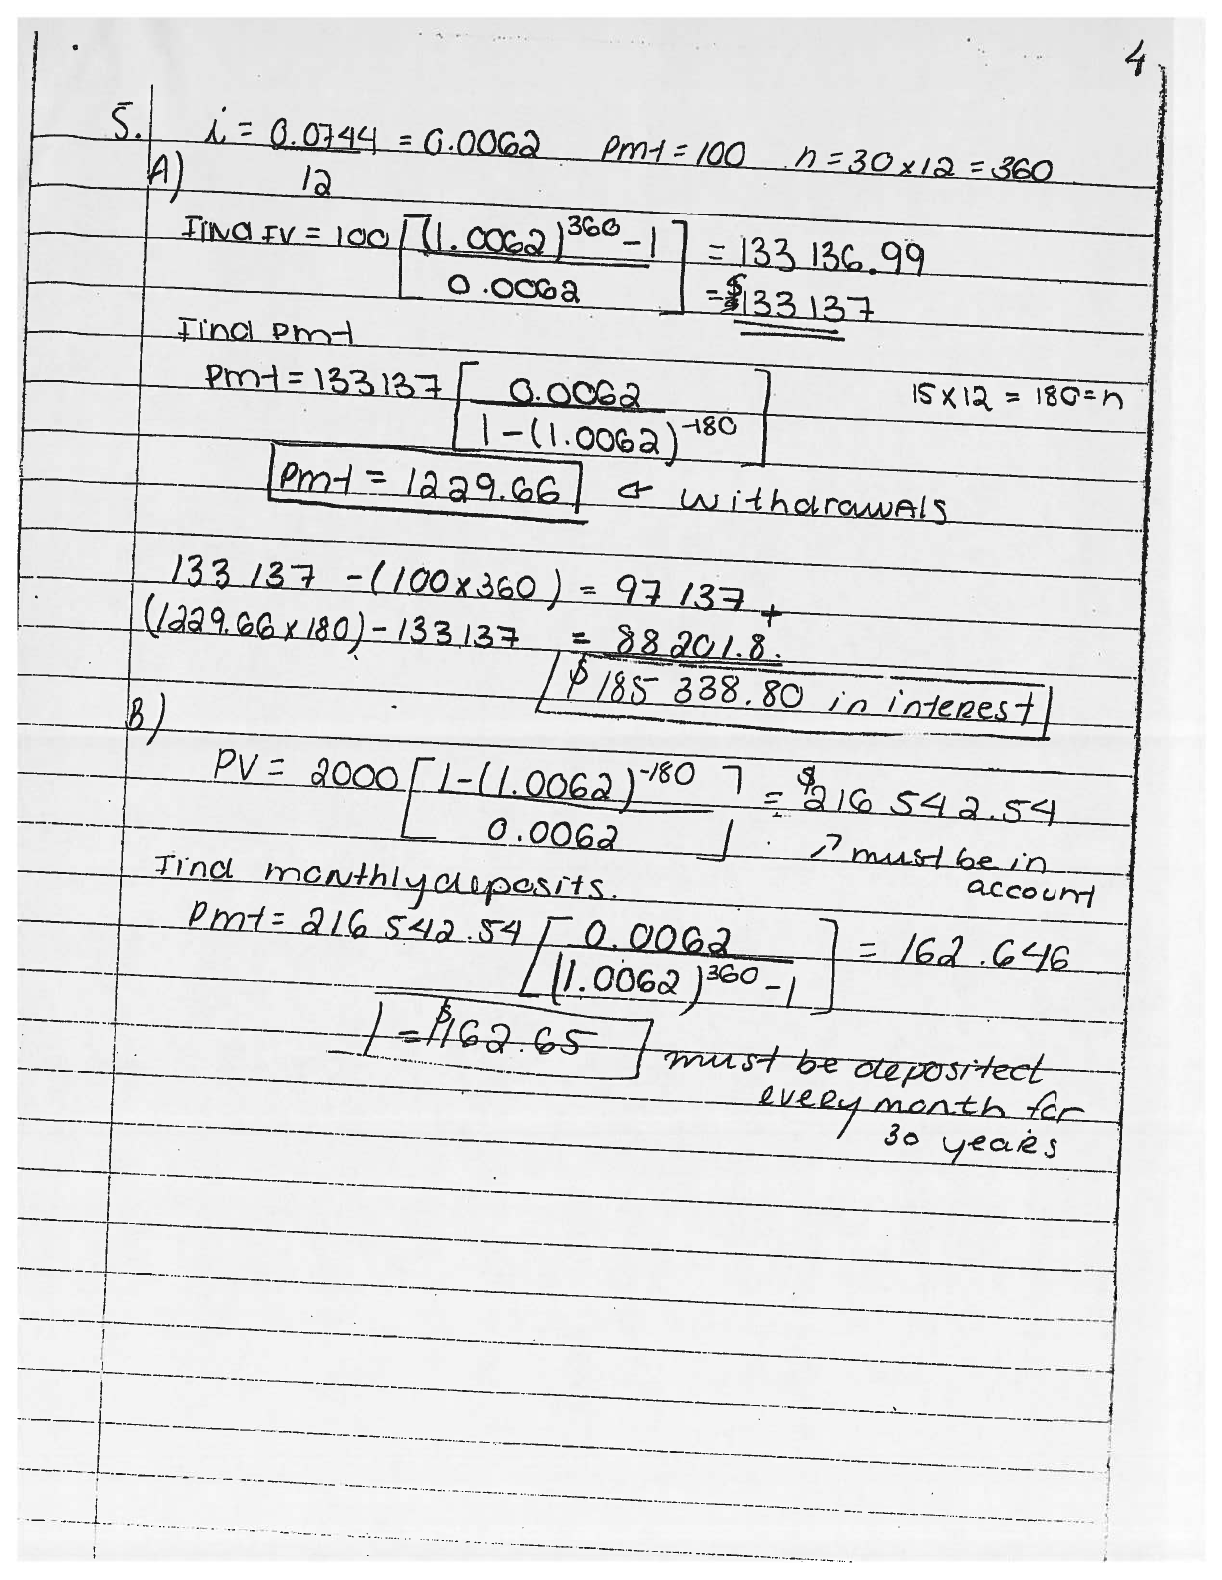 4
5. i = 0.0744 = 0.0062 Pmt = 100 n = 30 x 12 = 360
A) 12
Find FV = 100 [(1.0062)^360 - 1] = 133 136.99
0.0062 = $133 137
Find Pmt
Pmt = 133137 [ 0.0062 ] 15 x 12 = 180 = n
1-(1.0062)^-180
Pmt = 1229.66 ← withdrawals
133 137 - (100 x 360) = 97 137 +
(1229.66 x 180) - 133137 = 88 201.8.
$185 338.80 in interest
B)
PV = 2000 [1-(1.0062)^-180] = $216 542.54
0.0062 ↗ must be in
account
Find monthly deposits.
Pmt = 216 542.54 [ 0.0062 ] = 162.646
(1.0062)^360 - 1
= $162.65 must be deposited
every month for
30 years